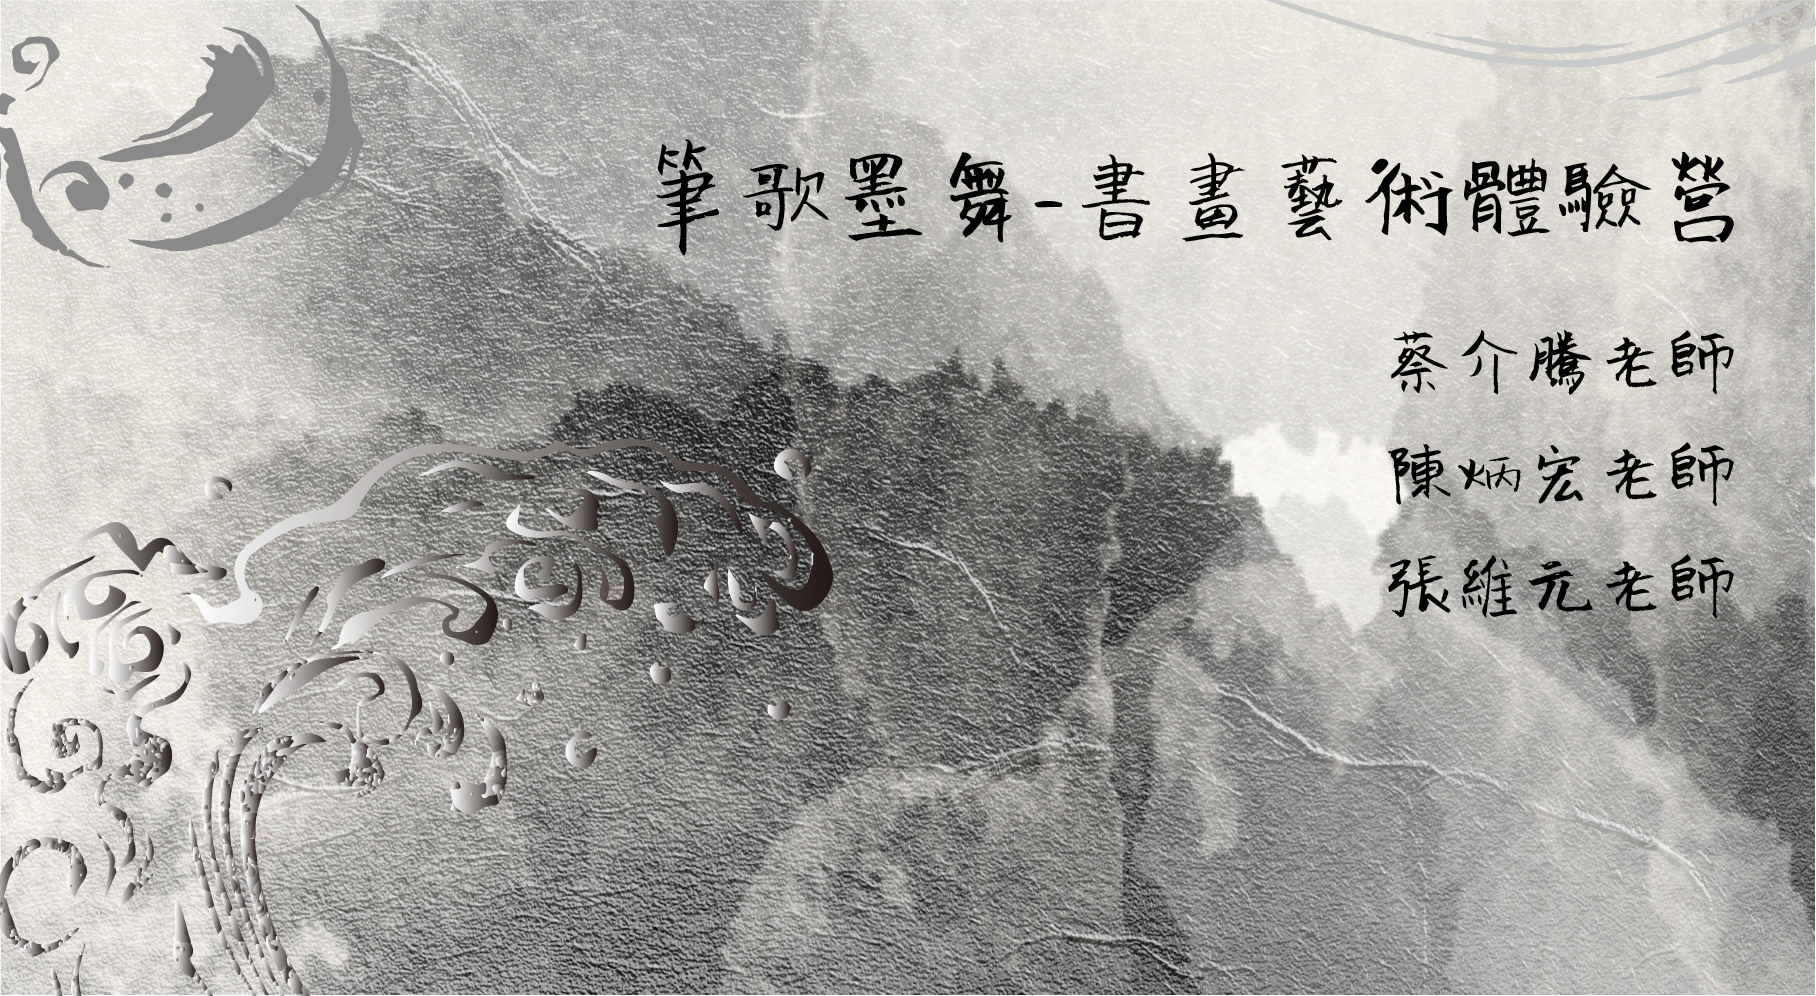 筆歌墨舞-書畫藝術體驗營
蔡介騰老師
陳炳宏老師
張維元老師